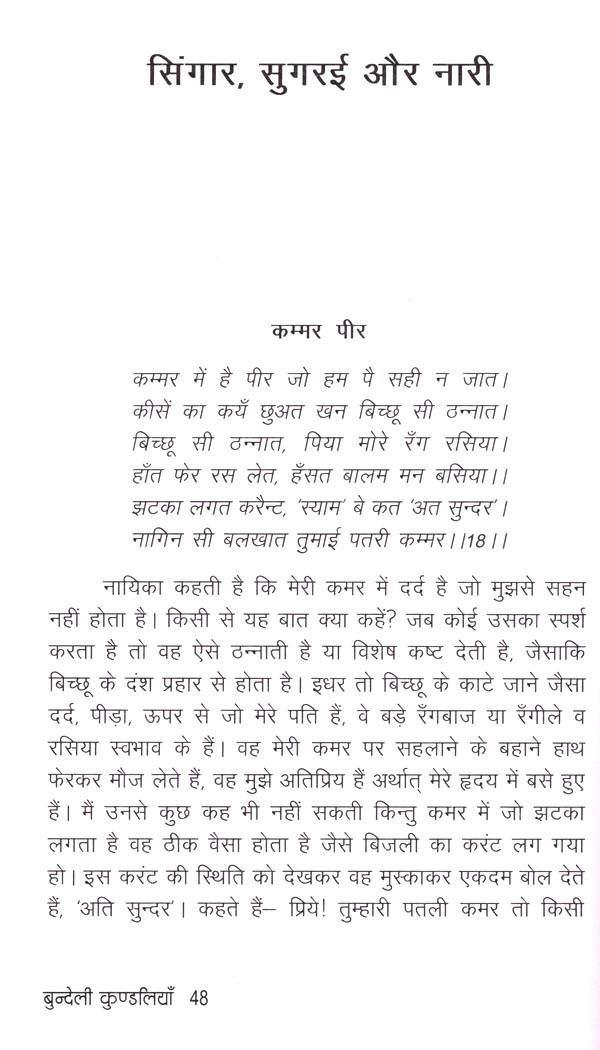 सिंगार, सुगरई और नारी
कम्मर पीर
कम्मर में है पीर जो हम पै सही न जात।
कीसें का कयँ छुअत खन बिच्छू सी ठन्नात।
बिच्छू सी ठन्नात, पिया मोरे रँग रसिया।
हाँत फेर रस लेत, हँसत बालम मन बसिया।।
झटका लगत करैन्ट, 'स्याम' बे कत 'अत सुन्दर'।
नागिन सी बलखात तुमाई पतरी कम्मर।।18।।
नायिका कहती है कि मेरी कमर में दर्द है जो मुझसे सहन
नहीं होता है। किसी से यह बात क्या कहें? जब कोई उसका स्पर्श
करता है तो वह ऐसे ठन्नाती है या विशेष कष्ट देती है, जैसाकि
बिच्छू के दंश प्रहार से होता है। इधर तो बिच्छू के काटे जाने जैसा
दर्द, पीड़ा, ऊपर से जो मेरे पति हैं, वे बड़े रँगबाज या रँगीले व
रसिया स्वभाव के हैं। वह मेरी कमर पर सहलाने के बहाने हाथ
फेरकर मौज लेते हैं, वह मुझे अतिप्रिय हैं अर्थात् मेरे हृदय में बसे हुए
हैं। मैं उनसे कुछ कह भी नहीं सकती किन्तु कमर में जो झटका
लगता है वह ठीक वैसा होता है जैसे बिजली का करंट लग गया
हो। इस करंट की स्थिति को देखकर वह मुस्काकर एकदम बोल देते
हैं, 'अति सुन्दर'। कहते हैं– प्रिये! तुम्हारी पतली कमर तो किसी
बुन्देली कुण्डलियाँ 48